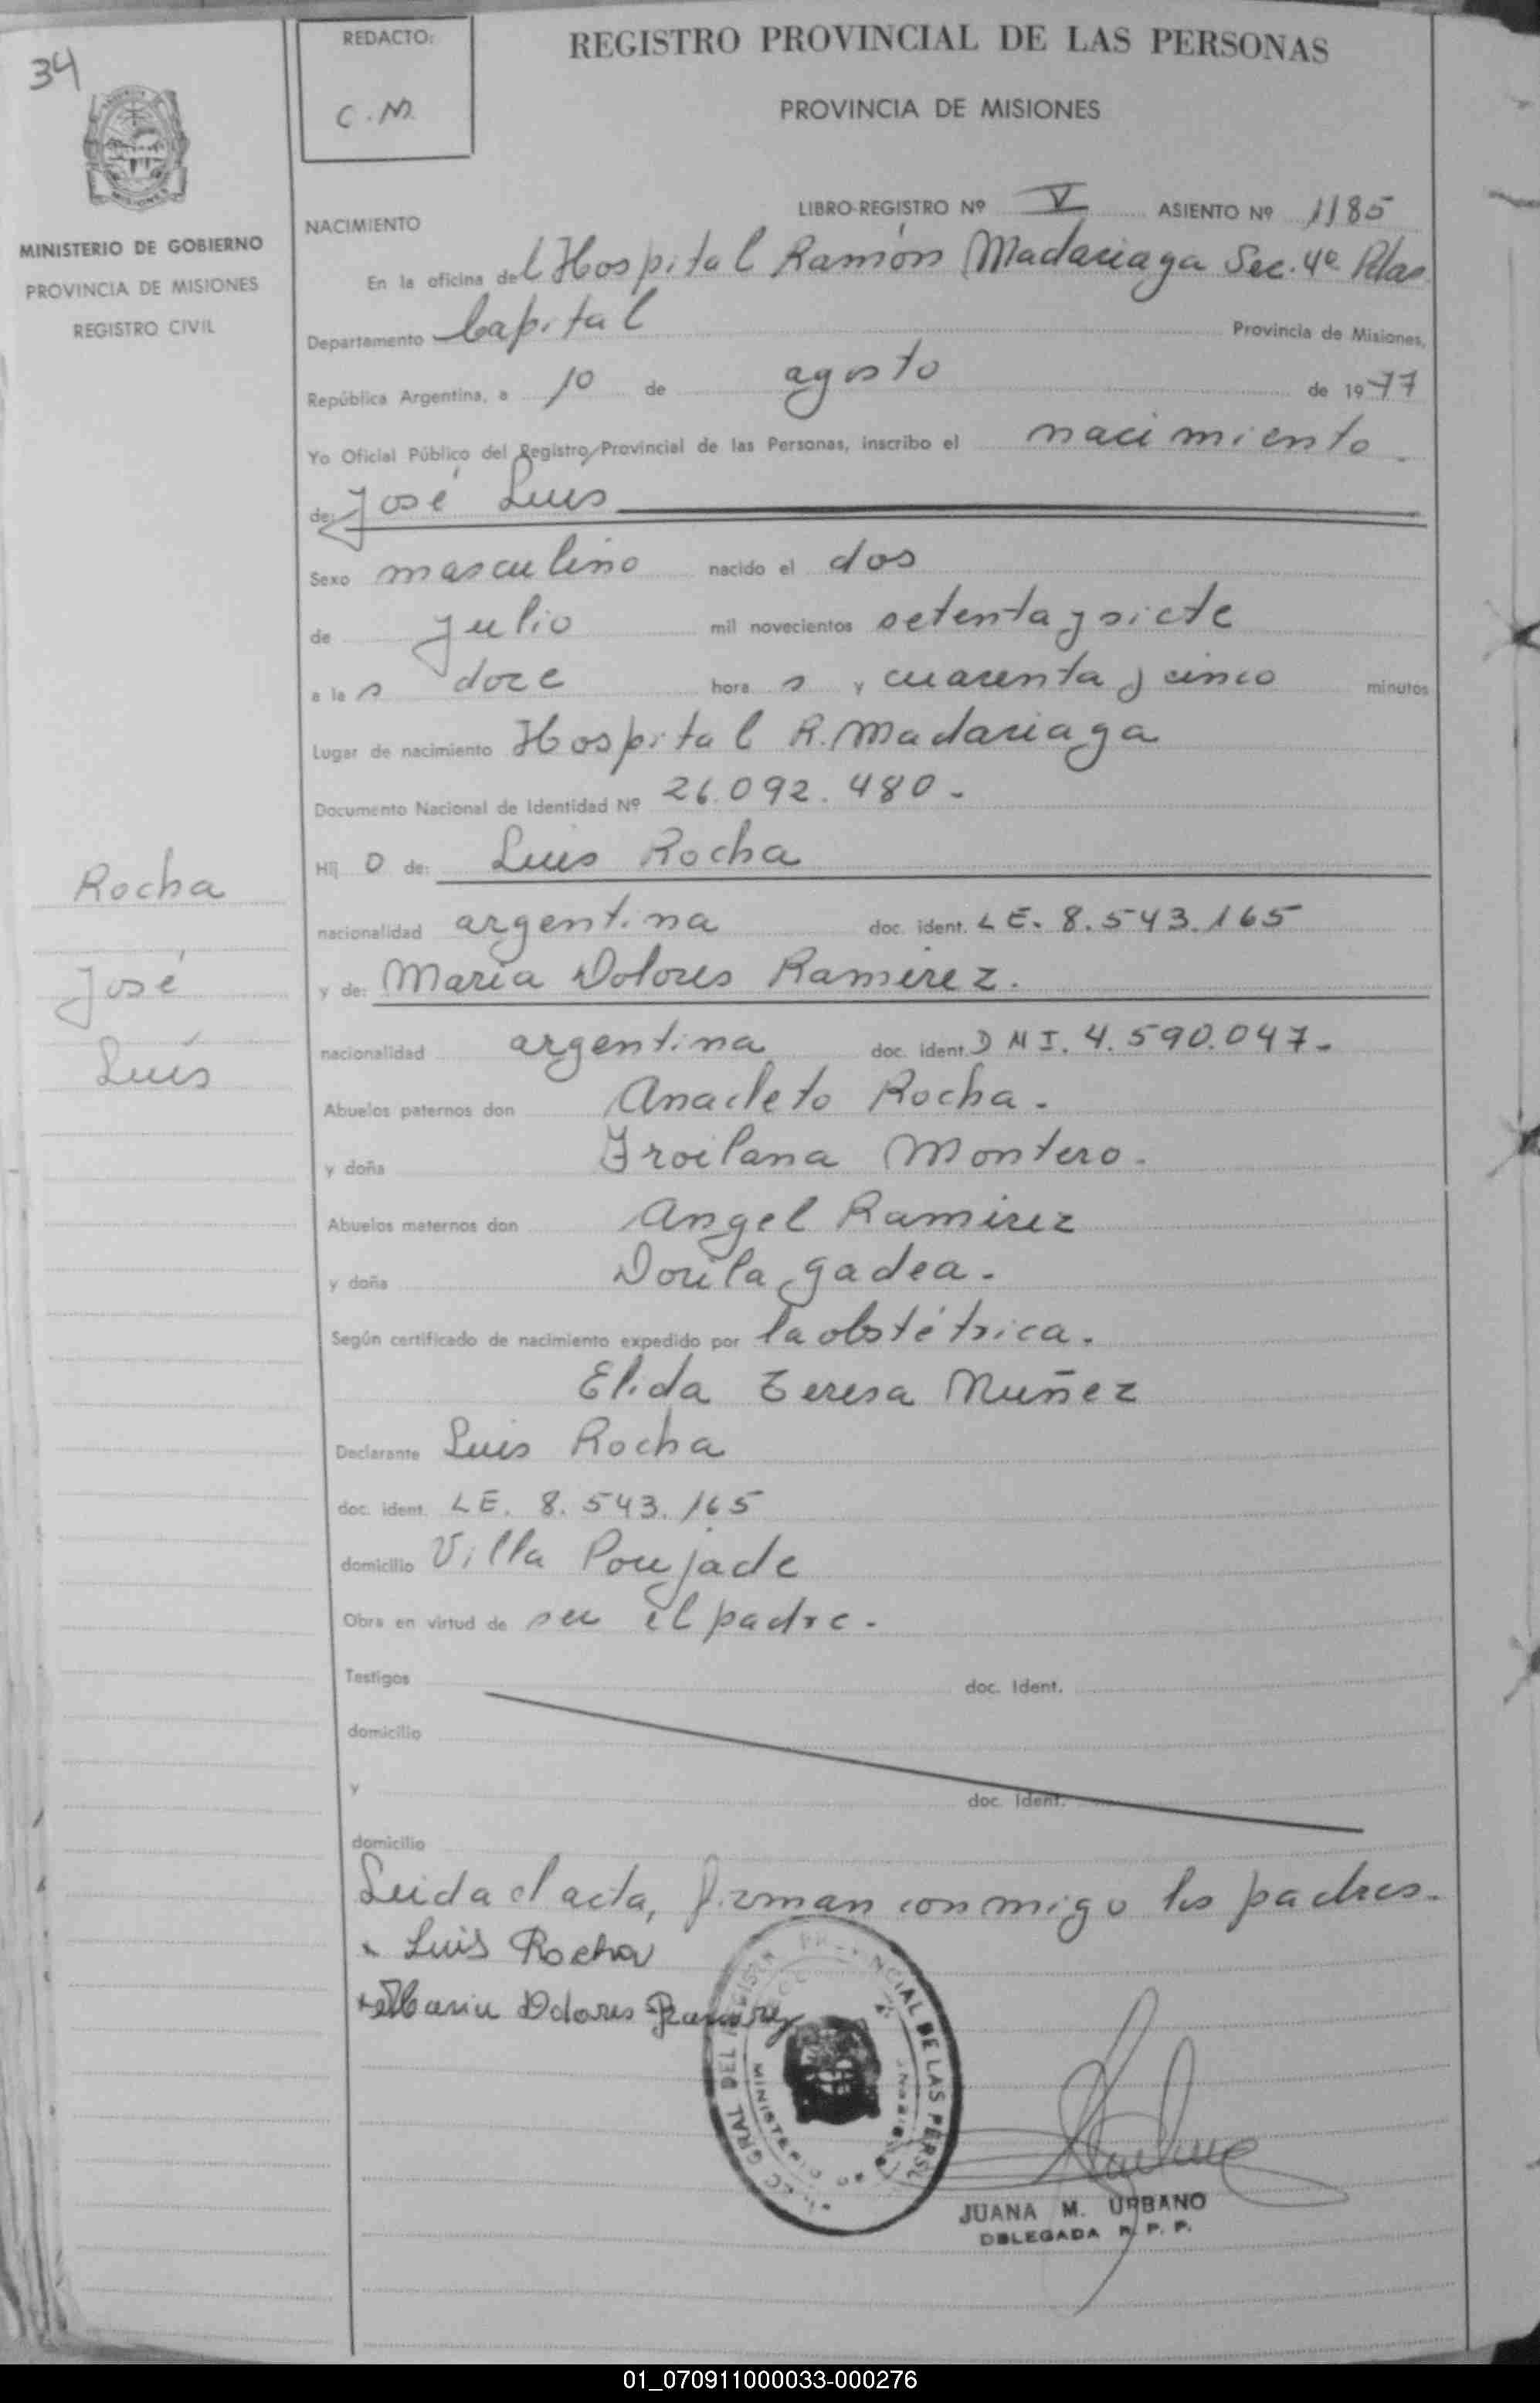 34
REDACTO:
C.M.
REGISTRO PROVINCIAL DE LAS PERSONAS
PROVINCIA DE MISIONES
MINISTERIO DE GOBIERNO
PROVINCIA DE MISIONES
REGISTRO CIVIL
LIBRO-REGISTRO Nº V ASIENTO Nº 1185
NACIMIENTO
En la oficina del Hospital Ramón Madariaga Sec. 4ª Pdas
Departamento Capital Provincia de Misiones,
República Argentina, a 10 de agosto de 1977
Yo Oficial Público del Registro Provincial de las Personas, inscribo el nacimiento
de: José Luis
Sexo masculino nacido el dos
de julio mil novecientos setenta y siete
a las doce horas y cuarenta y cinco minutos
Lugar de nacimiento Hospital R. Madariaga
Documento Nacional de Identidad Nº 26.092.480.-
Hijo de: Luis Rocha
nacionalidad argentina doc. ident. LE. 8.543.165
y de: Maria Dolores Ramirez.
nacionalidad argentina doc. ident. DNI. 4.590.047.-
Abuelos paternos don Anacleto Rocha.
y doña Froilana Montero.
Abuelos maternos don Angel Ramirez
y doña Dorila Gadea.
Según certificado de nacimiento expedido por la obstétrica.
Elida Teresa Nuñez
Declarante Luis Rocha
doc. ident. LE. 8.543.165
domicilio Villa Poujade
Obra en virtud de ser el padre.
Testigos doc. Ident.
domicilio
y doc. Ident.
domicilio
Leida el acta, firman conmigo los padres.
Luis Rocha
Maria Dolores Ramirez
Rocha
José
Luís
GRAL DEL REGISTRO PROVINCIAL DE LAS PERSO
MINISTERIO
JUANA M. URBANO
DELEGADA R. P. P.
01_070911000033-000276